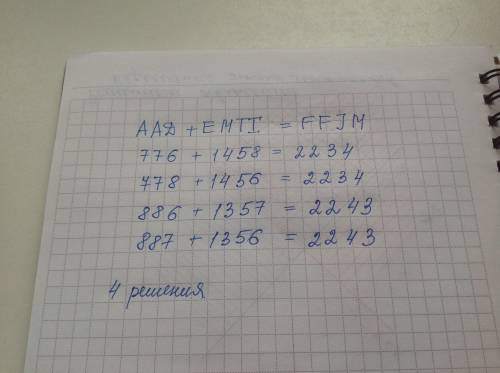 AAД + EMTI = FFJM
776 + 1458 = 2234
778 + 1456 = 2234
886 + 1357 = 2243
887 + 1356 = 2243
4 решения